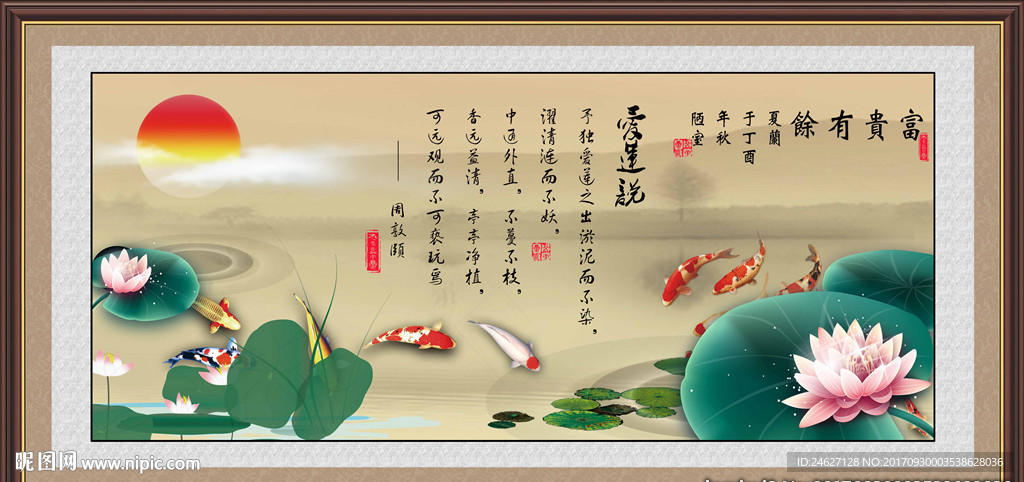 富貴有餘
夏蘭
于丁酉
年秋
陋室
愛蓮說
予独愛莲之出淤泥而不染，
濯清涟而不妖，
中通外直，不蔓不枝，
香远益清，亭亭净植，
可远观而不可亵玩焉
——周敦颐
昵图网 www.nipic.com
ID:24627128 NO:20170930003538628036